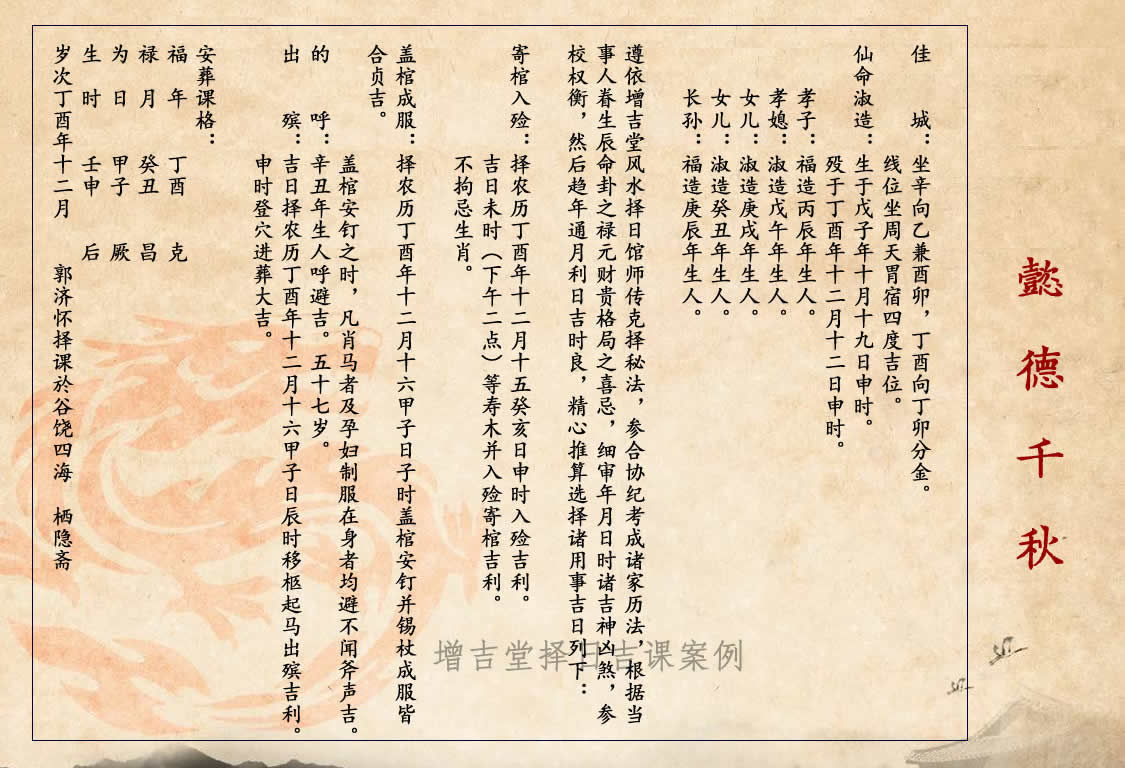 懿德千秋
佳 城：坐辛向乙兼酉卯，丁酉向丁卯分金。
线位坐周天胃宿四度吉位。
仙命淑造：生于戊子年十月十九日申时。
殁于丁酉年十二月十二日申时。
孝子：福造丙辰年生人。
孝媳：淑造戊午年生人。
女儿：淑造庚戌年生人。
女儿：淑造癸丑年生人。
长孙：福造庚辰年生人。
遵依增吉堂风水择日馆师传克择秘法，参合协纪考成诸家历法，根据当
事人眷生辰命卦之禄元财贵格局之喜忌，细审年月日时诸吉神凶煞，参
校权衡，然后趋年通月利日吉时良，精心推算选择诸用事吉日列下：
寄棺入殓：择农历丁酉年十二月十五癸亥日申时入殓吉利。
吉日未时（下午二点）等寿木并入殓寄棺吉利。
不拘忌生肖。
盖棺成服：择农历丁酉年十二月十六甲子日子时盖棺安钉并锡杖成服皆
合贞吉。
盖棺安钉之时，凡肖马者及孕妇制服在身者均避不闻斧声吉。
的 呼：辛丑年生人呼避吉。五十七岁。
出 殡：吉日择农历丁酉年十二月十六甲子日辰时移柩起马出殡吉利。
申时登穴进葬大吉。
安葬课格：
福 年 丁酉 克
禄 月 癸丑 昌
为 日 甲子 厥
生 时 壬申 后
岁次丁酉年十二月 郭济怀择课於谷饶四海 栖隐斋
增吉堂择日吉课案例